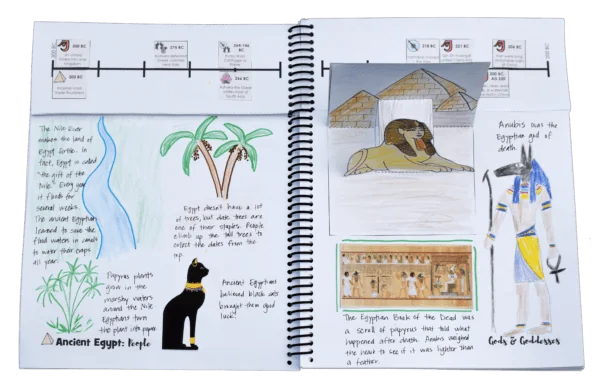 300 BC
218 BC
264-146 BC
264 BC
300 BC
221 BC
The Nile River
makes the land of
Egypt fertile. In
fact, Egypt is called
"the gift of the
Nile." Every year
it floods for
several weeks.
The ancient Egyptians
learned to save the
flood waters in canals
to water their crops
all year.
Egypt doesn't have a lot
of trees, but date trees are
one of their staples. People
climb up the tall trees to
collect the dates from the
top.
Papyrus plants
grow in the
marshy waters
around the Nile
Egyptians turn
the plant into paper
Ancient Egyptians
believed black cats
brought them good
luck!
Ancient Egypt: People
Anubis was the
Egyptian god of
death.
The Egyptian Book of the Dead was
a scroll of papyrus that told what
happened after death. Anubis weighed
the heart to see if it was lighter than
a feather.
Gods & Goddesses